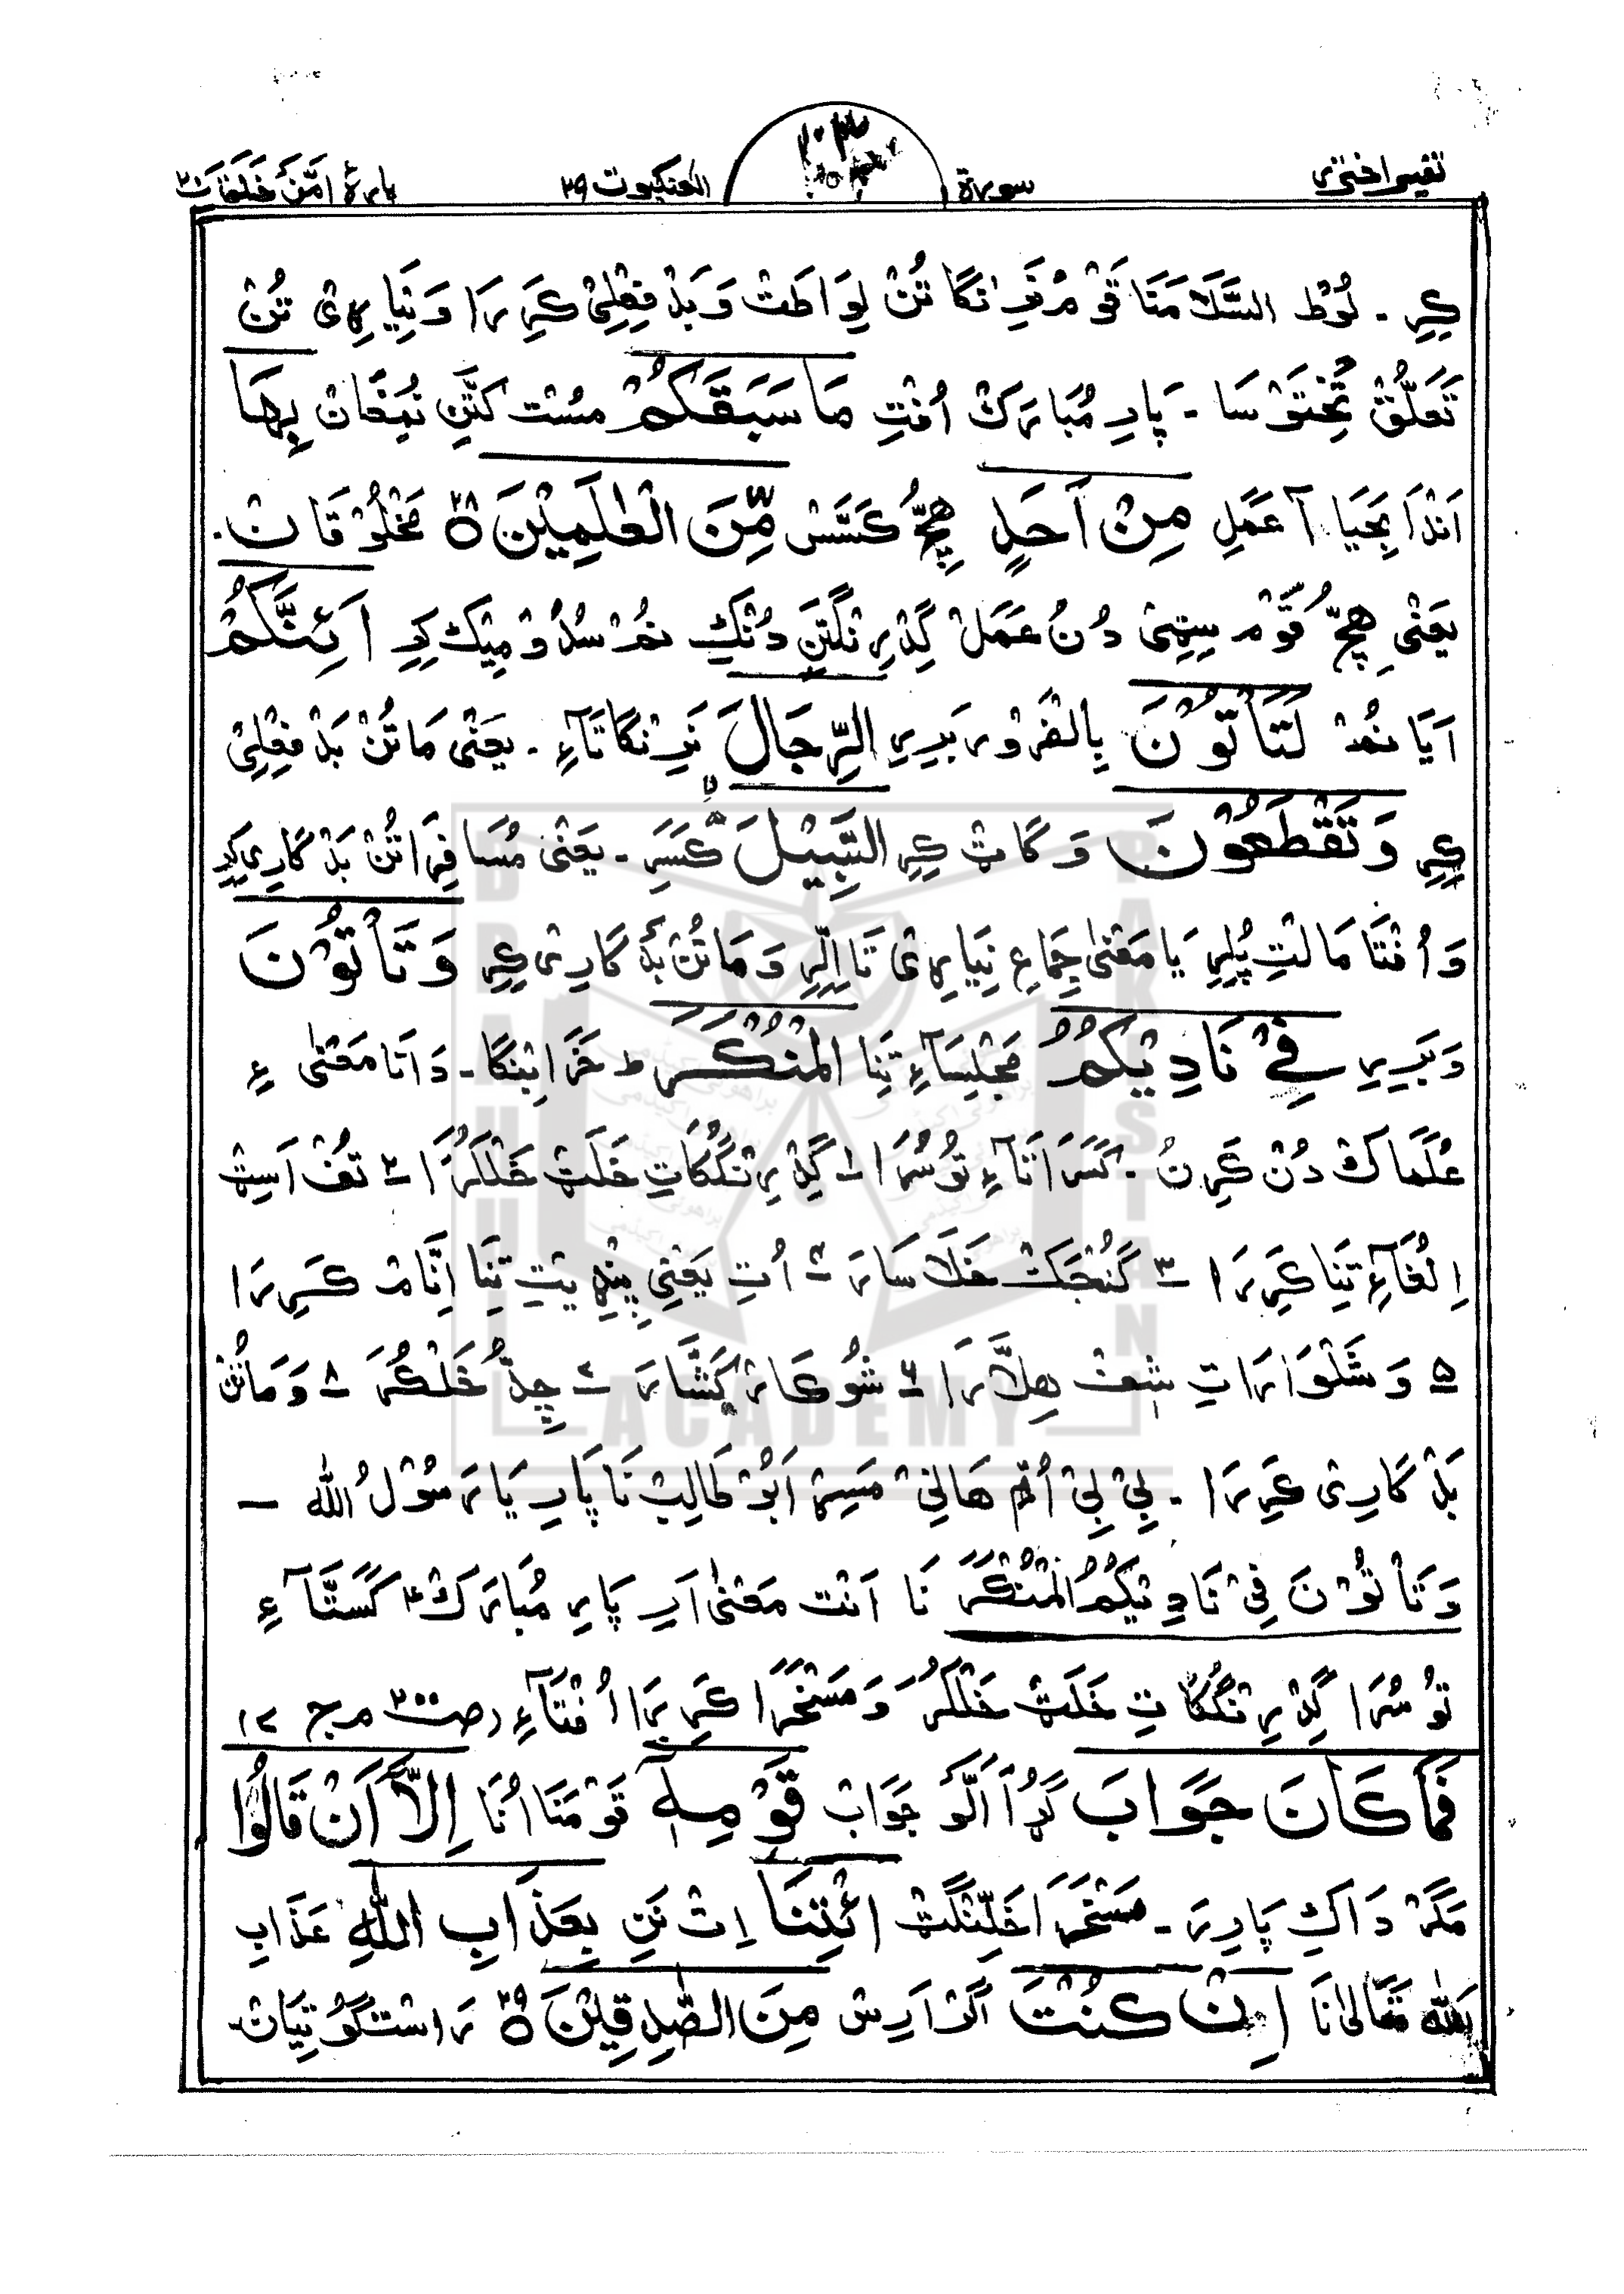 تفسیر اختری سورۃ العنکبوت ۲۹ پارۂ امّن خلق ۲۰
کِرِ ۔ لُوْط السَّلَامنَا قَوْم نَرِنْگَا تُنْ لِوَاطَتْ وَبَدْ فِعْلِیْ کَرِیرَا وَنِیَاڑِیْ تُنْ
تَعَلُّقْ تِخْتَوْسَا ۔ پَارِ مُبَارَکْ اُفْتِ مَا سَبَقَكُمْ مُسْت کَتَّنِ نُمْیَّانْ بِهَا
اَنْدَا بِحَیَا آ عَمَلِ مِنْ اَحَدٍ هِچُّ کَسَّسْ مِّنَ الْعٰلَمِيْنَ ۲۸ مَخْلُوْقَانْ ۔
یَعْنِیْ هِچُّ قَوْم دُنْ عَمَلْ دُنْکِ نُمْ اَئِنَّكُمْ
آیَا نُمْ لَتَاْتُوْنَ بِالضَّرُوْر بَرِیرِ الرِّجَالَ نَرِنْگَاتَآءِ ۔ یَعْنِیْ مَاتُنْ بَدْ فِعْلِیْ
کِرِ وَتَقْطَعُوْنَ وَگَاٹْ کِرِ السَّبِيْلَ کَسَرِ ۔ یَعْنِیْ مُسَافِرَاتُنْ بَدْ گَارِیْ کِرِ
وَاُفْتَا مَالْتِ پُلِرِ یَا مَعْنیٰ جِمَاعِ نِیَاڑِیْ تَا اِلِّرِ وَمَاتُنْ بَدْ گَارِیْ کِرِ وَتَاْتُوْنَ
وَبَرِیرِ فِيْ نَادِيْكُمُ مَجْلِیسَآءِ تِنَا الْمُنْكَرَ ط خَرَابِنْگَا ۔ دَانَا مَعْنیٰ ءِ
عُلَمَاکْ دُنْ کَرِنُ ۔ کَسَرَاتَآءِ تُوسُرَا ۱ گِدْرِنْگُکَاتِ خَلَٹْ خَلْکُرَا ۲ تُفْ اَسِٹْ
اِلُغَآءِ تِنَا کَرِیرَا ۳ گَنْجِکْ خَلَاسَارَ ۴ اُتِ یَعْنِیْ تِنَا اِنَّامْ کَرِیرَا
۵ وَشَلْوَارَاتِ شِفْ هِلَّارَا ۶ شُوکَارْ کَشَّارَ ۷ چِلُّ خَلْکُرَ ۸ وَمَاتُنْ
بَدْ گَارِیْ کَرِیرَا ۔ بِیْ بِیْ اُمِّ هَانِیْ مَسِڑ اَبُوْ طَالِبْ نَا پَارِ یَا رَسُوْلُ اللّٰه ۔
وَتَاْتُوْنَ فِيْ نَادِيْكُمُ الْمُنْكَرَ نَا اَنْت مَعْنیٰ اَرِ پَارِ مُبَارَکْ کَسَتَّآءِ
تُوسُرَا گِدْرِنْگُکَاتِ خَلَٹْ خَلْکُرَ وَمَسْخَرَا کَرِیرَا اُفْتَآءِ رصت۲۰۰ مرج ۱۲
فَمَا كَانَ جَوَابَ گِڑَا اَلَّوْ جَوَابْ قَوْمِهٖٓ قَوْمنَا اُنَا اِلَّآ اَنْ قَالُوا
مَگَرْ دَاکِ پَارِرَ ۔ مَسْخَرَا ائْتِنَا اِتْ نَنِ بِعَذَابِ اللّٰهِ عَذَابِ
اللّٰه تَعَالیٰ نَا اِنْ كُنْتَ اَگَرْ اَرِسْ مِنَ الصّٰدِقِيْنَ ۲۹ رَاسْتْگُوْتِیَانْ